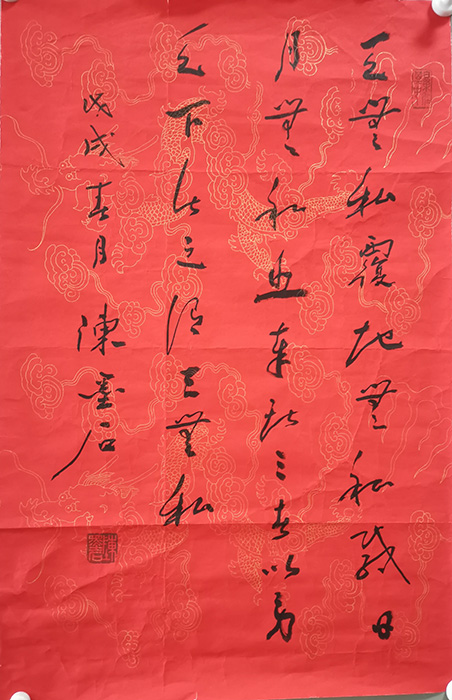 天無私覆地無私載日
月無私照奉斯三者以勞
天下此之謂三無私
戊戌春月陳墨石